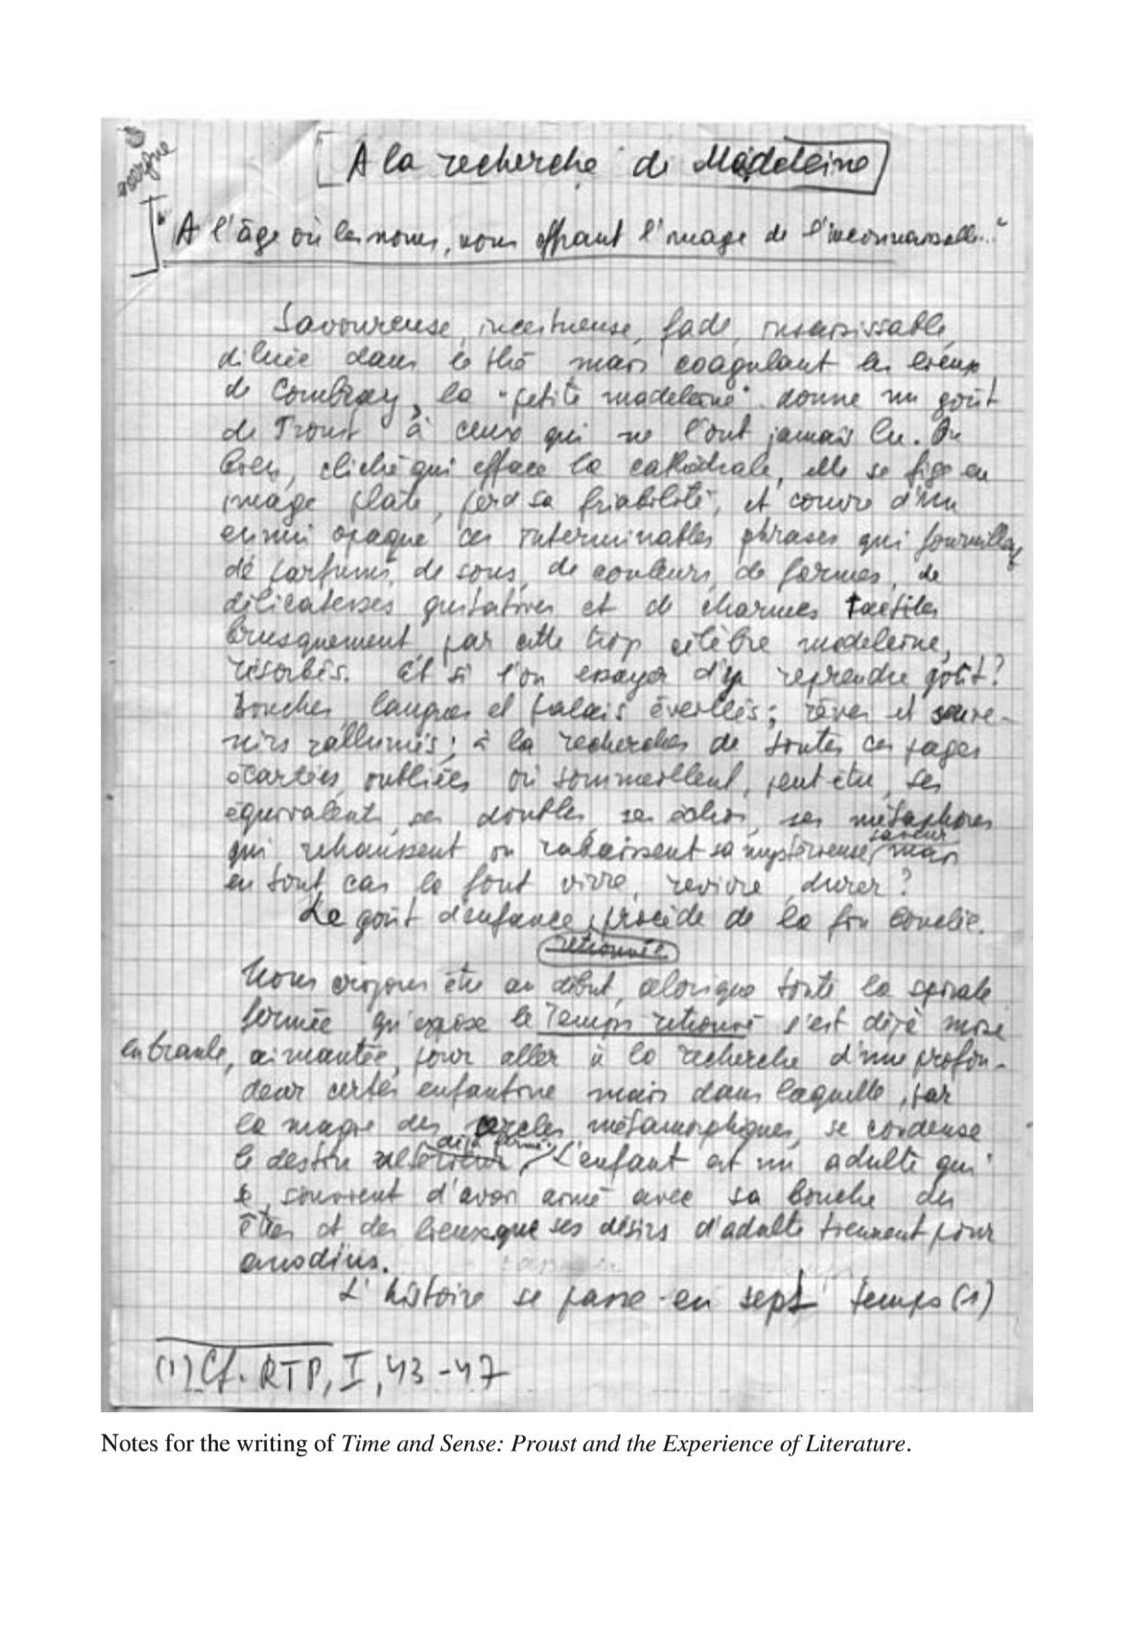 exergue
[A la recherche de Madeleine]
["A l'âge où les noms, nous offrant l'image de l'inconnaissable..."
Savoureuse, incestueuse, fade, insaisissable,
diluée dans le thé mais coagulant les lieux
de Combray, la "petite madeleine" donne un goût
de Proust à ceux qui ne l'ont jamais lu. Ou
bien, cliché qui efface la cathédrale, elle se fige en
image plate, perd sa friabilité, et couvre d'un
ennui opaque ces interminables phrases qui fourmillent
de parfums, de sons, de couleurs, de formes, de
délicatesses gustatives et de charmes tactiles
brusquement, par cette trop célèbre madeleine,
résorbés. Et si l'on essayer d'y reprendre goût?
Bouches, langues et palais éveillés; rêves et souve-
nirs rallumés; à la recherches de toutes ces pages
écartées, oubliées où sommeillent, peut-être, ses
équivalents, ses doubles, ses échos, ses métaphores
saveur
qui rehaussent ou rabaissent sa mystérieuse mais
en tout cas la font vivre, revivre, durer?
Le goût d'enfance procède de la fin
retrouvée
Nous croyons être au début, alors que toute la spirale
fermée qu'expose le Temps retrouvé s'est déjà mise
en branle, aimantée, pour aller à la recherche d'une profon-
deur certes enfantine mais dans laquelle, par
la magie des cercles métamorphiques, se condense
déjà fermé.
le destin ultérieur, L'enfant est un adulte qui
se souvient d'avoir aimé avec sa bouche des
êtres et des lieux que ses désirs d'adulte tiennent pour
anodins.
L'histoire se passe en sept temps (1)
(1) Cf. RTP, I, 43-47
Notes for the writing of Time and Sense: Proust and the Experience of Literature.